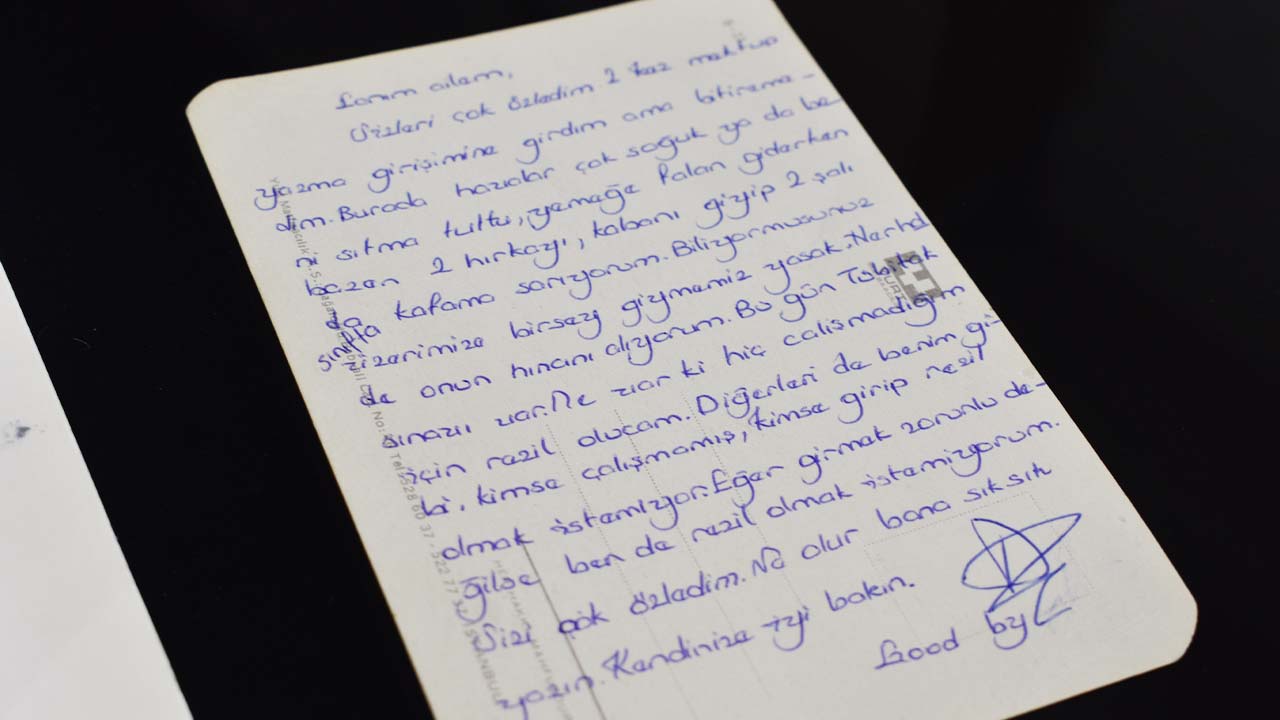 Canım ailem,
Sizleri çok özledim 2 kez mektup
yazma girişimine girdim ama bitireme-
dim. Burada havalar çok soğuk ya da be-
ni sıtma tuttu, yemeğe falan giderken
bazen 2 hırkayı, kabanı giyip 2 şalı
da kafama sarıyorum. Biliyormusunuz
sınıfta üzerimize birşey giymemiz yasak. Herhal
de onun hıncını alıyorum. Bu gün Tübitak
sınavı var. Ne var ki hiç calışmadığım
için rezil olucam. Diğerleri de benim gi-
bi, kimse çalışmamış, kimse girip rezil
olmak istemiyor. Eğer girmek zorunlu de-
ğilse ben de rezil olmak istemiyorum.
Sizi çok özledim. Ne olur bana sık sık
yazın. Kendinize iyi bakın.
Good by